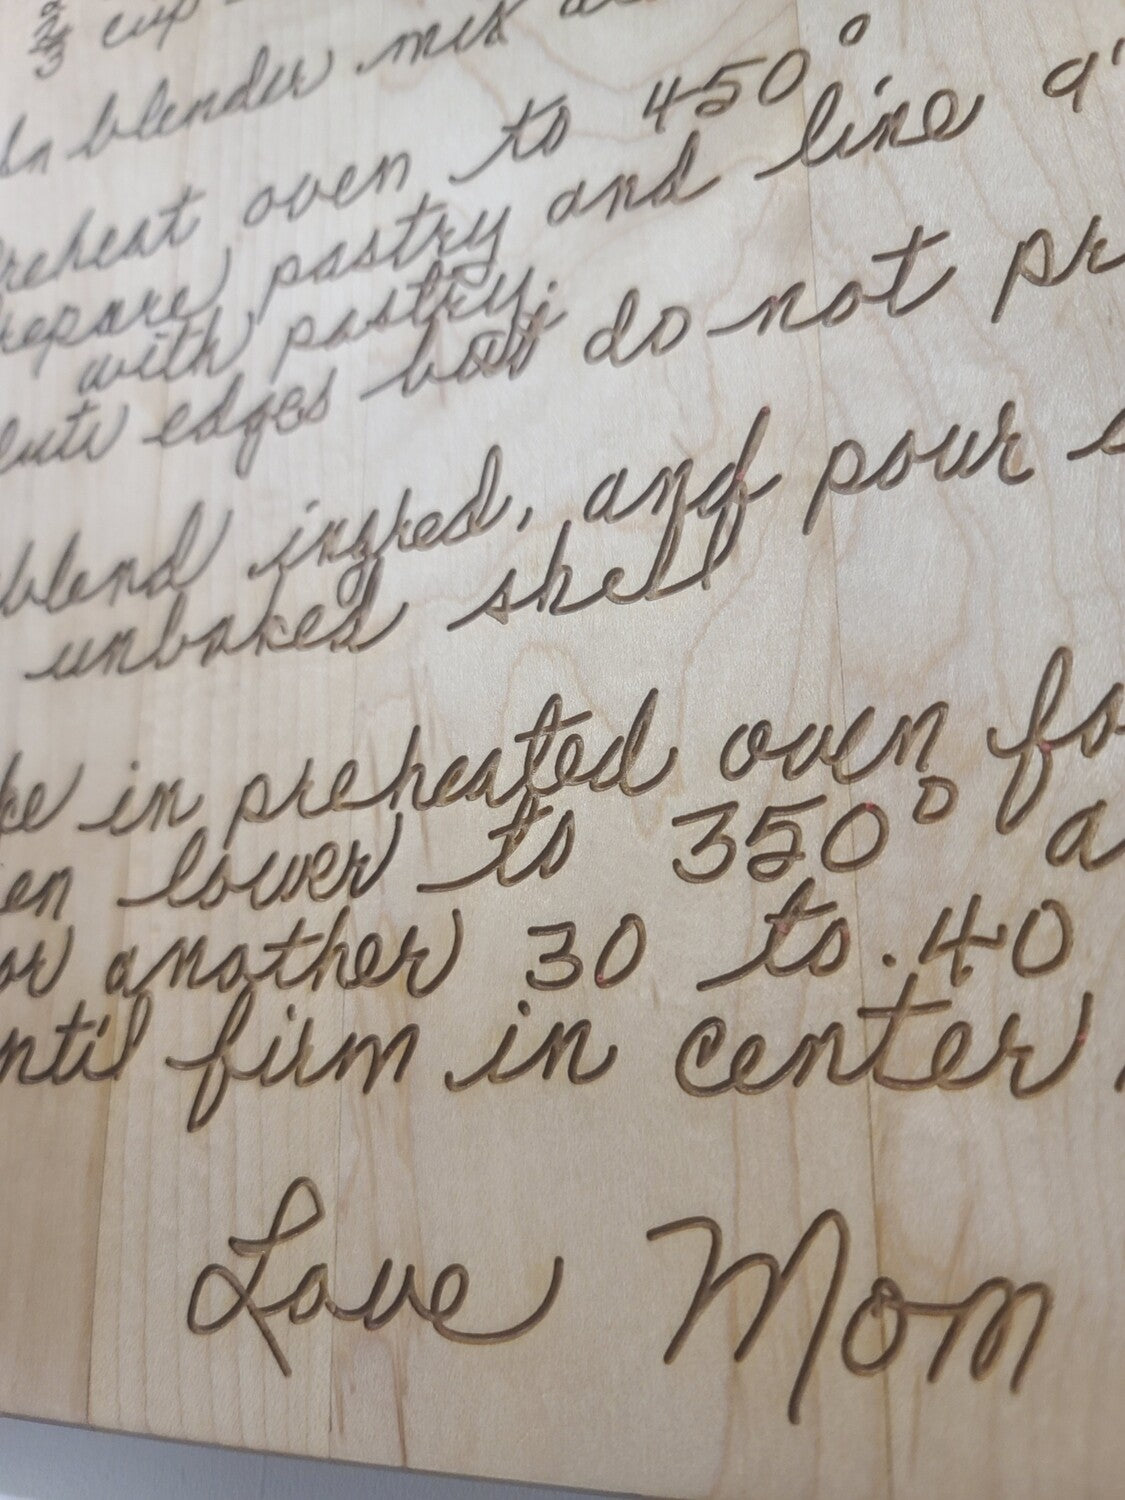 2/3 cup
In blender mix
reheat oven to 450°
repare pastry and line 9"
with pastry.
lute edges but do not pr
blend ingred, and pour
unbaked shell
ke in preheated oven fo
en lower to 350° a
or another 30 to. 40
ntil firm in center
Love Mom